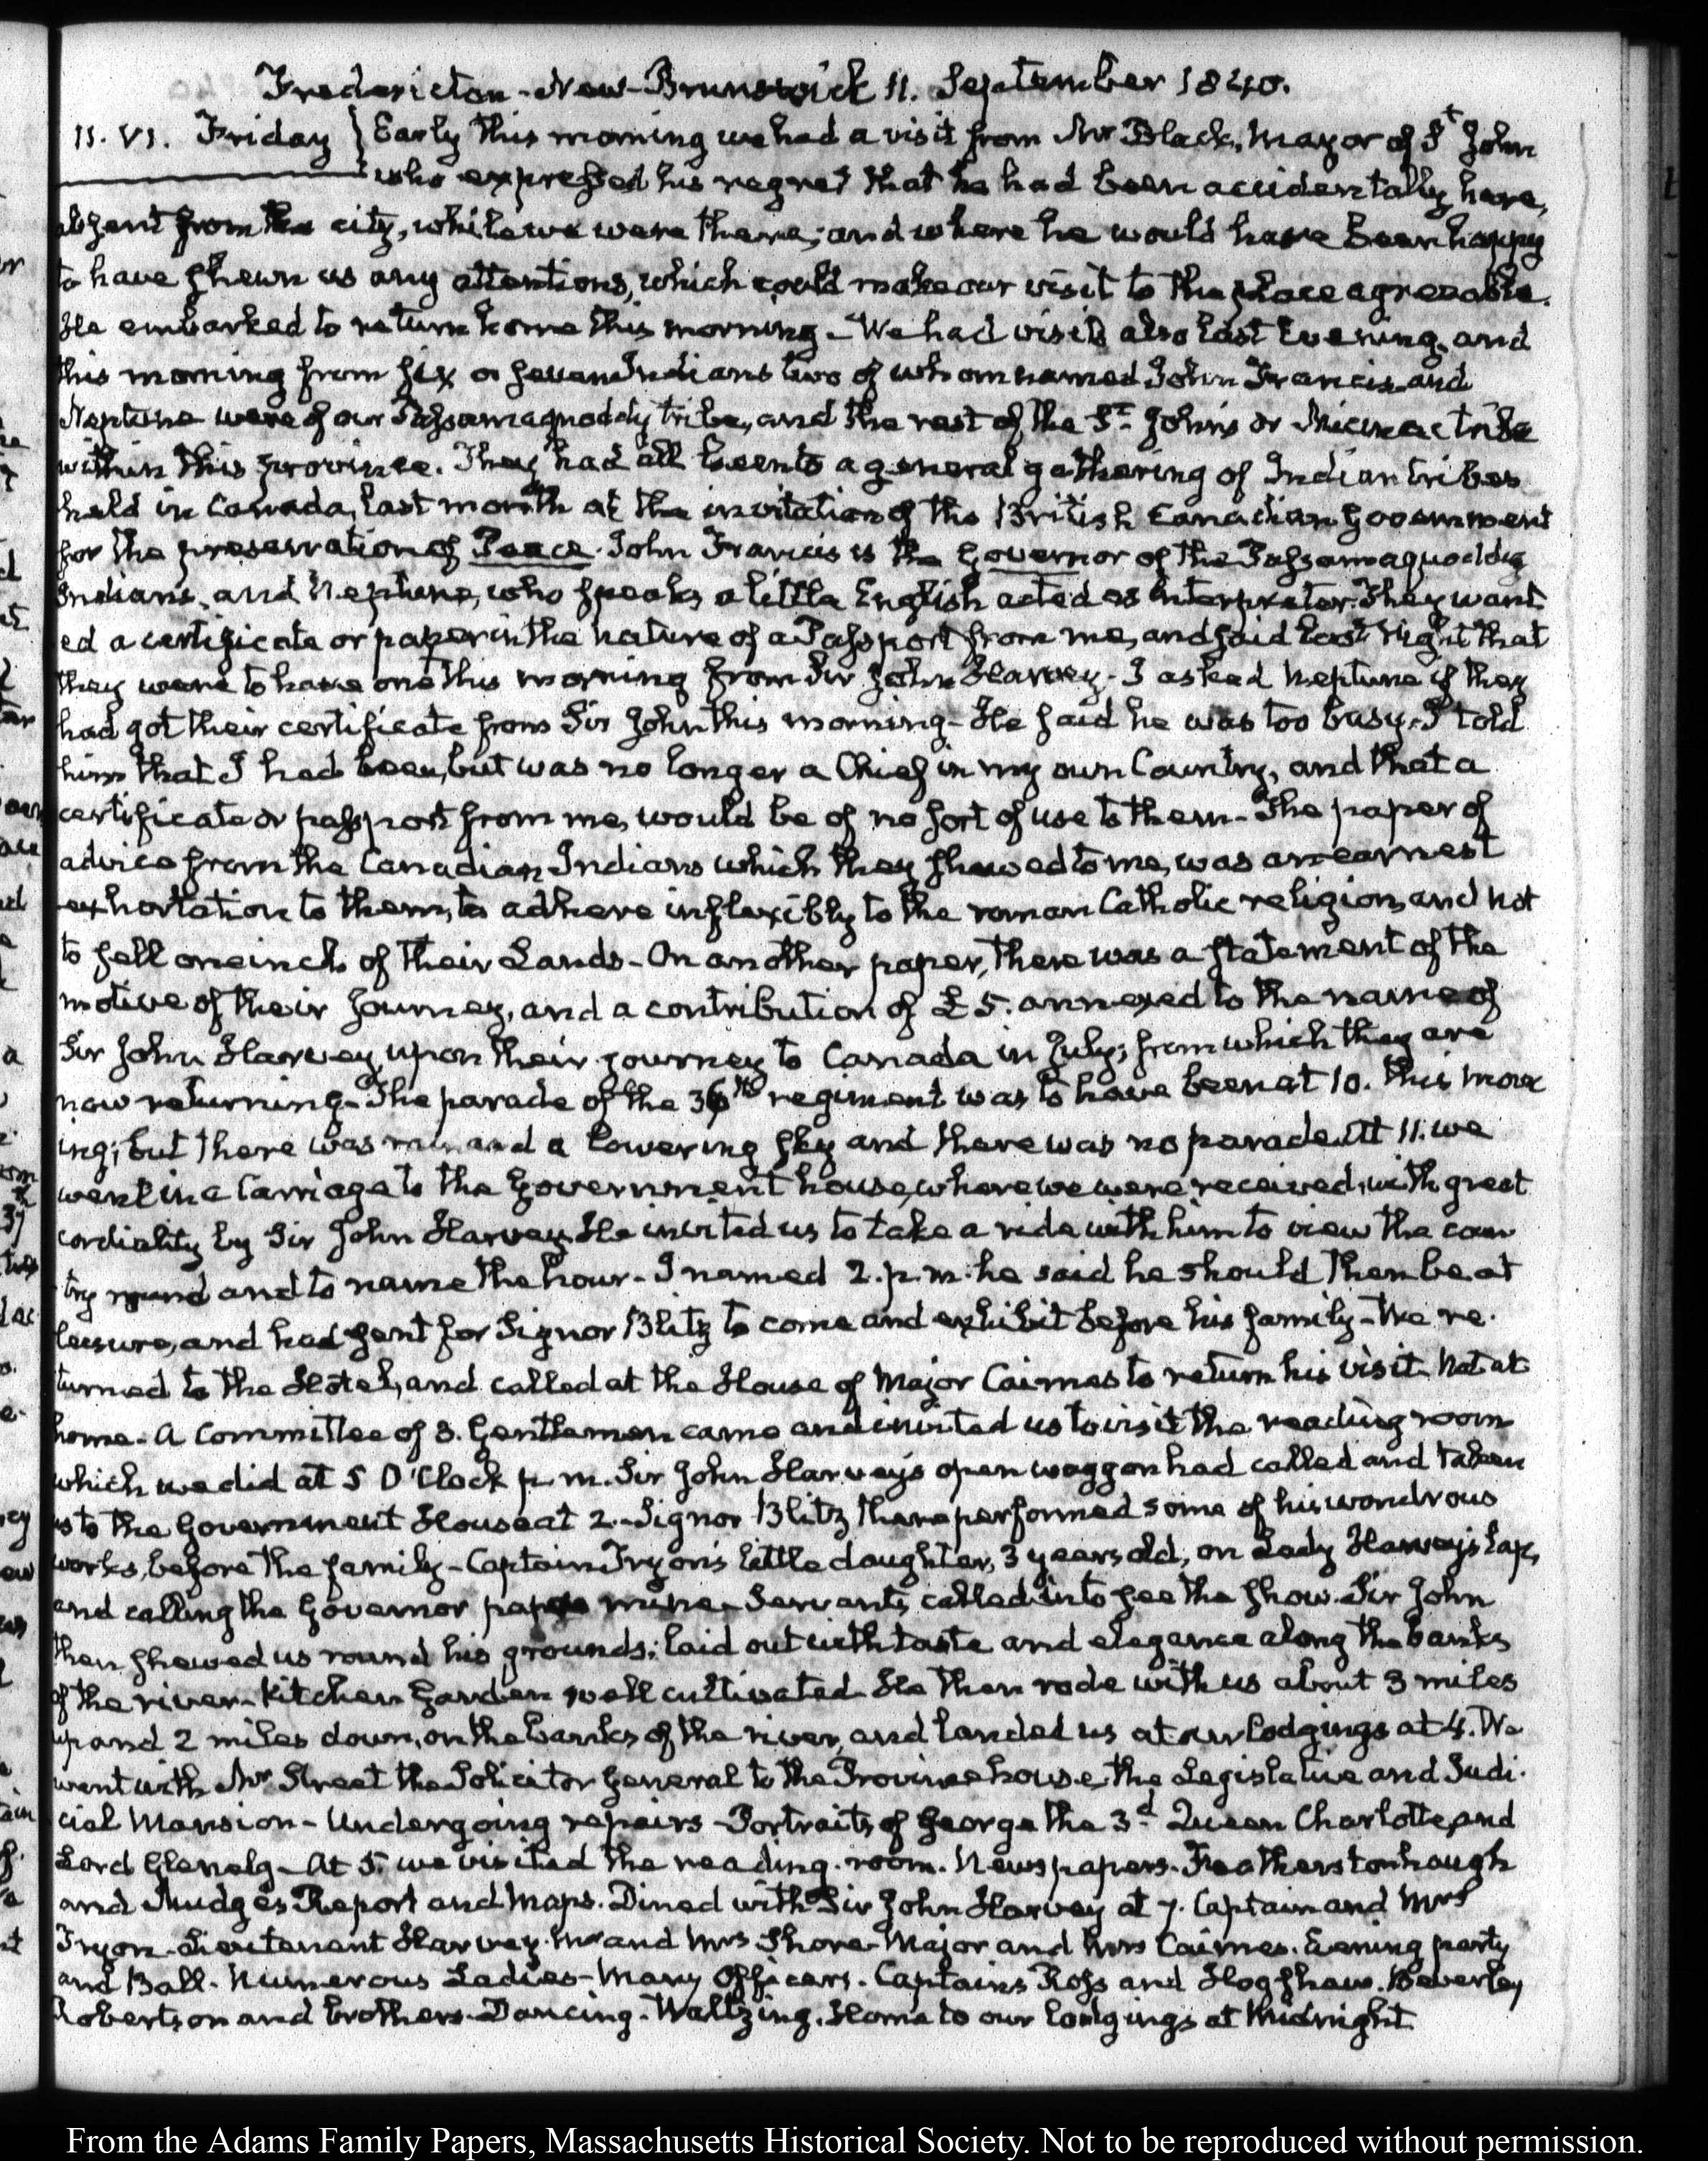 Fredericton - New-Brunswick 11. September 1840.
11. VI. Friday } Early this morning we had a visit from Mr Black, Mayor of St John
who expressed his regret that he had been accidentally here,
absent from the city, while we were there; and where he would have been happy
to have shewn us any attentions, which could make our visit to the place agreeable.
He embarked to return home this morning - We had visits also last Evening, and
this morning from six or seven Indians two of whom named John Francis and
Neptune were of our Passamaquoddy tribe, and the rest of the St. John's or Micmac tribe
within this province. They had all been to a general gathering of Indian tribes
held in Canada, last month at the invitation of the British Canadian Government
for the preservation of Peace. John Francis is the Governor of the Passamaquoddy
Indians, and Neptune, who speaks a little English acted as Interpreter. They want-
ed a certificate or paper in the nature of a Passport from me, and said last Night that
they were to have one this morning from Sir John Harvey - I asked Neptune if they
had got their certificate from Sir John this morning - He said he was too busy. I told
him that I had been, but was no longer a Chief in my own Country, and that a
certificate or passport from me, would be of no sort of use to them - The paper of
advice from the Canadian Indians which they shewed to me, was an earnest
exhortation to them, to adhere inflexibly to the roman Catholic religion, and not
to sell one inch of their Lands - On another paper, there was a statement of the
motive of their Journey, and a contribution of £5. annexed to the name of
Sir John Harvey upon their journey to Canada in July; from which they are
now returning - The parade of the 36th regiment was to have been at 10. this morn
ing; but there was rain and a lowering sky and there was no parade. At 11. we
went in a Carriage to the Government house, where we were received, with great
cordiality by Sir John Harvey. He invited us to take a ride with him to view the coun
try round and to name the hour - I named 2. p.m. he said he should then be at
leisure, and had sent for Signor Blitz to come and exhibit before his family - We re-
turned to the Hotel, and called at the House of Major Cairnes to return his visit. Not at
home. A Committee of 3. Gentlemen came and invited us to visit the reading room
which we did at 5 O'Clock p.m. Sir John Harvey's open waggon had called and taken
us to the Government House at 2. - Signor Blitz there performed some of his wondrous
works, before the family - Captain Tryon's little daughter, 3 years old, on Lady Harvey's lap,
and calling the Governor papa mine. Servants, called in to see the show. Sir John
then shewed us round his grounds; laid out with taste and elegance along the banks
of the river - Kitchen Garden well cultivated He then rode with us about 3 miles
up and 2 miles down, on the banks of the river, and landed us at our lodgings at 4. We
went with Mr Street the Solicitor General to the Province house, the Legislative and Judi-
cial Mansion - Undergoing repairs - Portraits of George the 3d Queen Charlotte, and
Lord Glenelg - At 5. we visited the reading room. Newspapers. Featherstonhaugh
and Mudge's Report and Maps. Dined with Sir John Harvey at 7. Captain and Mrs
Tryon - Lieutenant Harvey. Mr and Mrs Shore - Major and Mrs Cairnes. Evening party
and Ball. Numerous Ladies - Many Officers. Captains Ross and Hogshaw. Beverley
Robertson and brothers - Dancing - Waltzing. Home to our lodgings at Midnight.
From the Adams Family Papers, Massachusetts Historical Society. Not to be reproduced without permission.